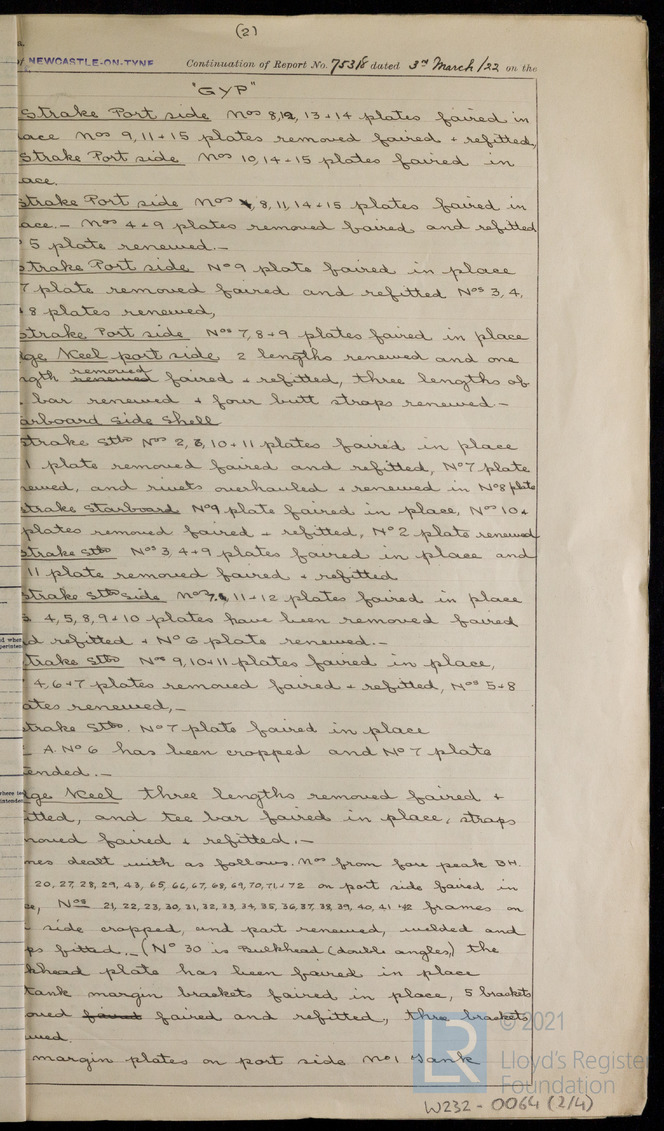 (2)
NEWCASTLE-ON-TYNE Continuation of Report No. 75318 dated 3rd March /22 on the
"GYP"
Strake Port side Nos 8,12, 13+14 plates faired in
ace Nos 9,11+15 plates removed faired + refitted,
Strake Port side Nos 10,14+15 plates faired in
ace.
Strake Port side Nos 8,11,14+15 plates faired in
ace. — Nos 4+9 plates removed faired and refitted
5 plate renewed. —
Strake Port side No 9 plate faired in place
7 plate removed faired and refitted Nos 3, 4,
+ 8 plates renewed,
Strake Port side Nos 7,8+9 plates faired in place
ge Keel port side 2 lengths renewed and one
removed
ngth renewed faired + refitted, three lengths of
bar renewed + four butt straps renewed —
arboard Side Shell
Strake Stbd Nos 2, 3, 10+11 plates faired in place
1 plate removed faired and refitted, No 7 plate
newed, and rivets overhauled + renewed in No 8 plate
Strake Starboard No 9 plate faired in place, Nos 10+
plates removed faired + refitted, No 2 plate renewed
Strake Stbd Nos 3, 4+9 plates faired in place and
11 plate removed faired + refitted
Strake Stbd side Nos 7, 11+12 plates faired in place
4,5,8,9+10 plates have been removed faired
d refitted + No 6 plate renewed. —
trake Stbd Nos 9,10+11 plates faired in place,
4,6+7 plates removed faired + refitted, Nos 5+8
ates renewed, —
trake Stbd. No 7 plate faired in place
A. No 6 has been cropped and No 7 plate
ended. —
ge Keel three lengths removed faired +
itted, and tee bar faired in place, straps
moved faired + refitted. —
mes dealt with as follows. Nos from fore peak BH.
20, 27, 28, 29, 43, 65, 66, 67, 68, 69, 70, 71 + 72 on port side faired in
ce, Nos 21, 22, 23, 30, 31, 32, 33, 34, 35, 36, 37, 38, 39, 40, 41 42 frames on
side cropped, and part renewed, welded and
ps fitted. — (No 30 is Bulkhead (double angles,) the
khead plate has been faired in place
tank margin brackets faired in place, 5 brackets
oved faired faired and refitted, three brackets
ewed.
margin plates on port side No 1 Tank
LR © 2021
Lloyd's Register
Foundation
W232 - 0064 (2/4)